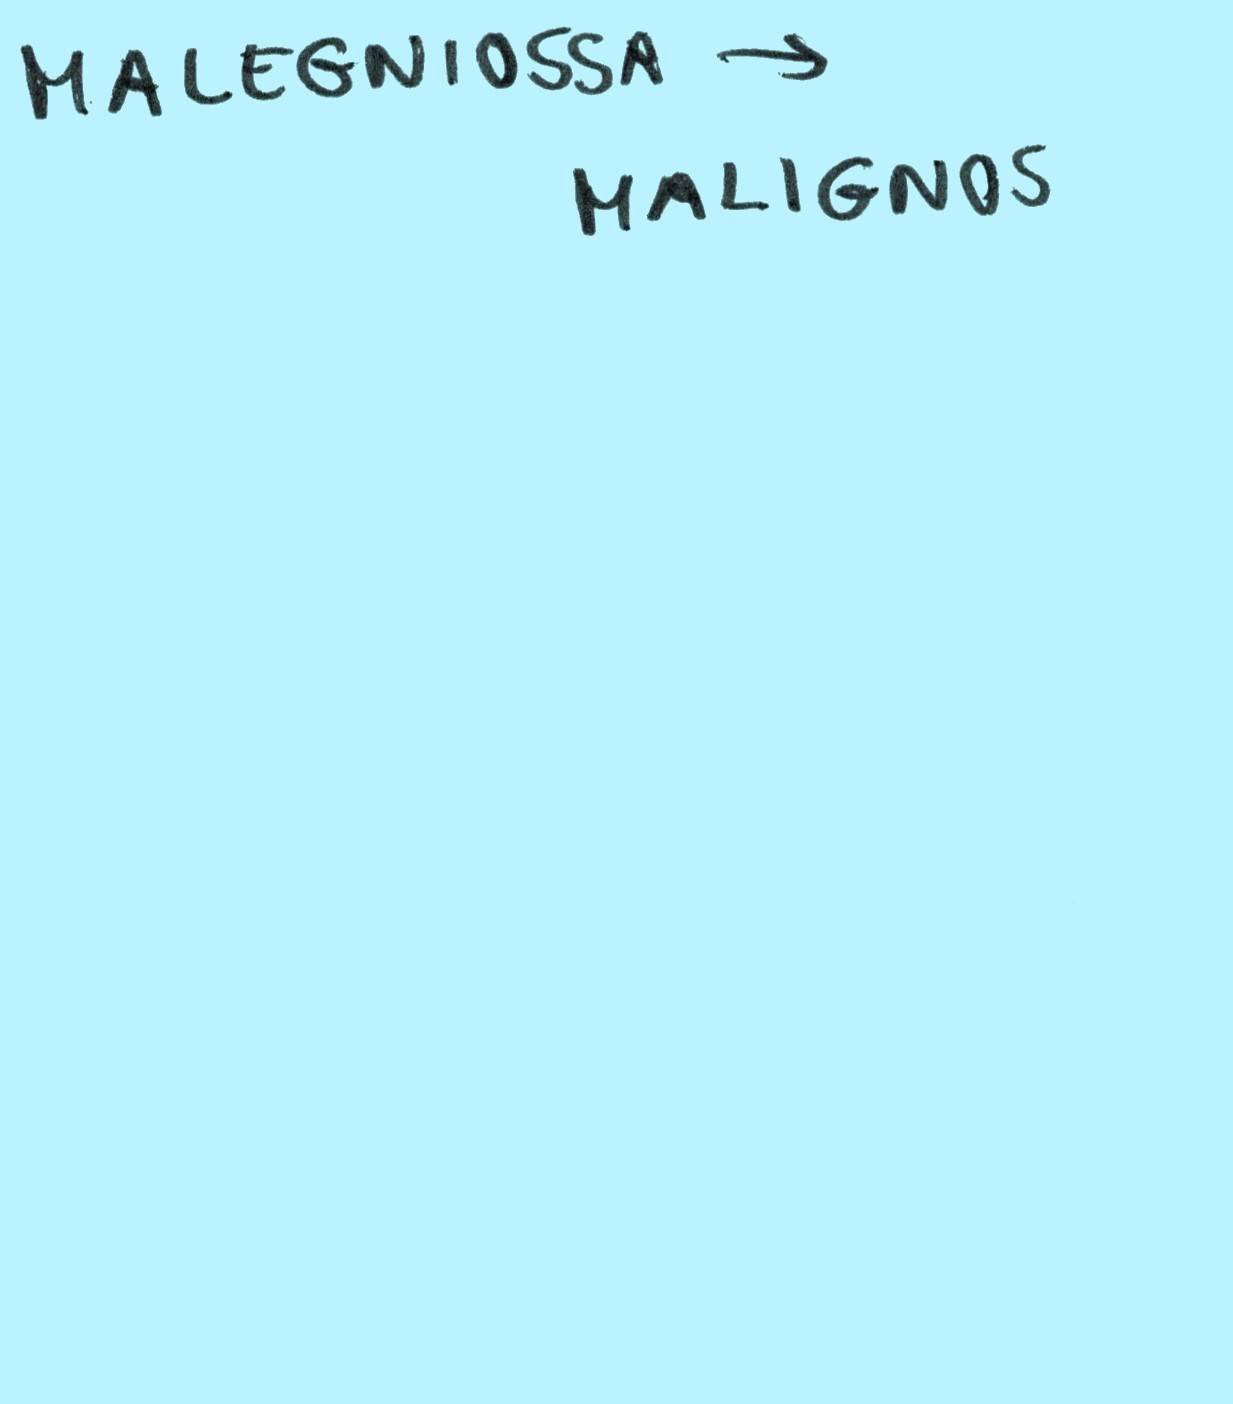 MALEGNIOSSA →
MALIGNOS